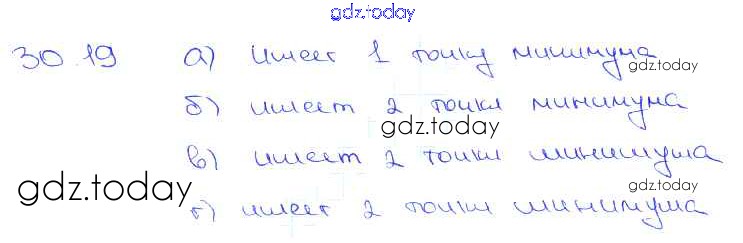 gdz.today
30.19 а) имеет 1 точку минимума
gdz.today
б) имеет 2 точки минимума
gdz.today
в) имеет 2 точки минимума
gdz.today
gdz.today
г) имеет 2 точки минимума